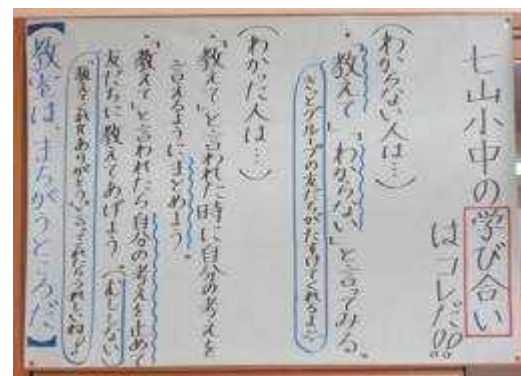 七山小中の学び合い
はコレだ!!
(わからない人は…)
・「教えて」「わからない」と言ってみる。
きっとグループの友だちがたすけてくれるよ
(わかった人は…)
・「教えて」と言われた時に自分の考えを
言えるようにまとめよう。
・「教えて」と言われたら自分の考えを止めて
友だちに教えてあげよう
「教えてくれてありがとう」って言われたらうれしいね♪
【教室は、まちがうところだ】